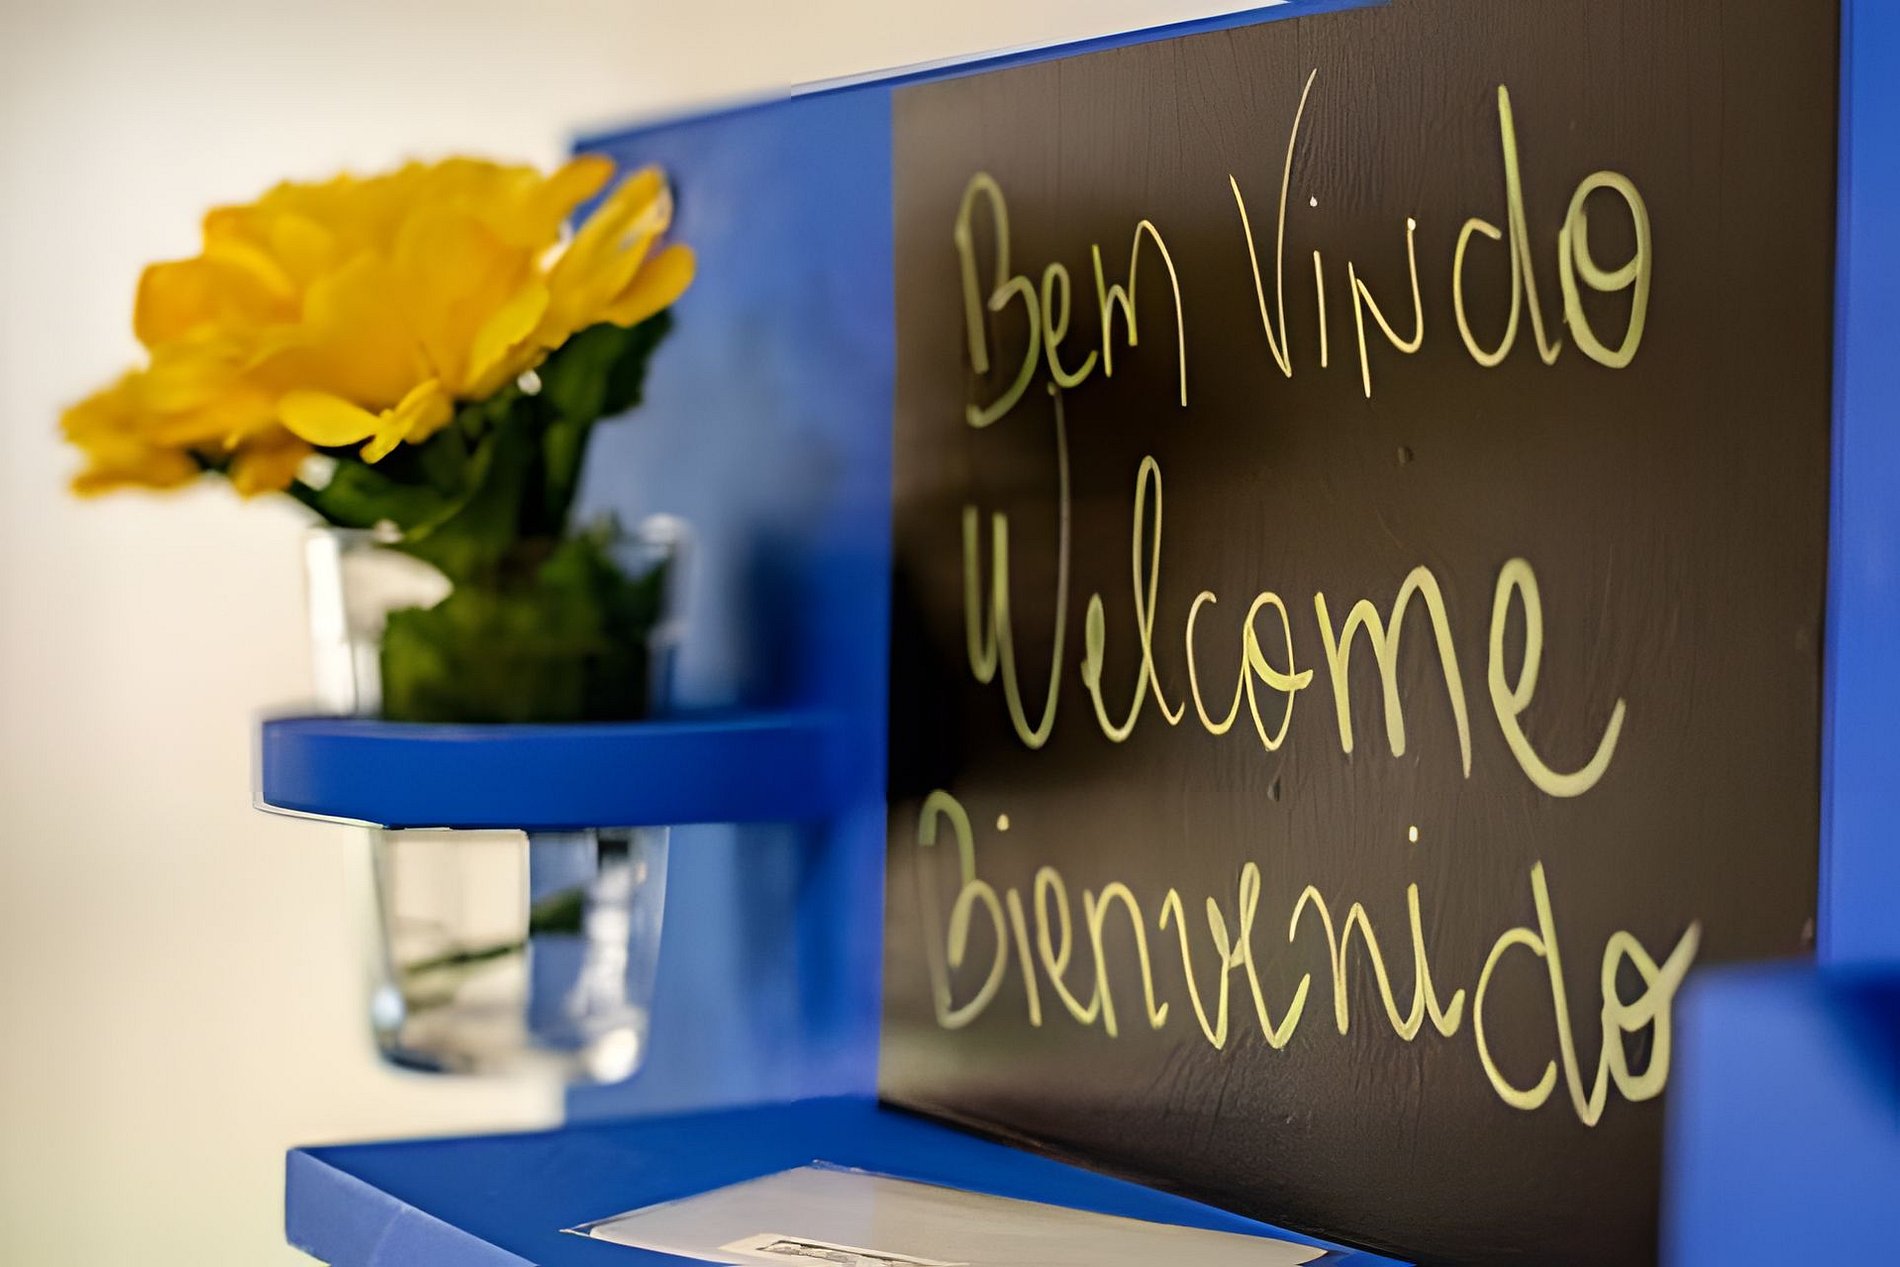 Bem Vindo
Welcome
Bienvenido